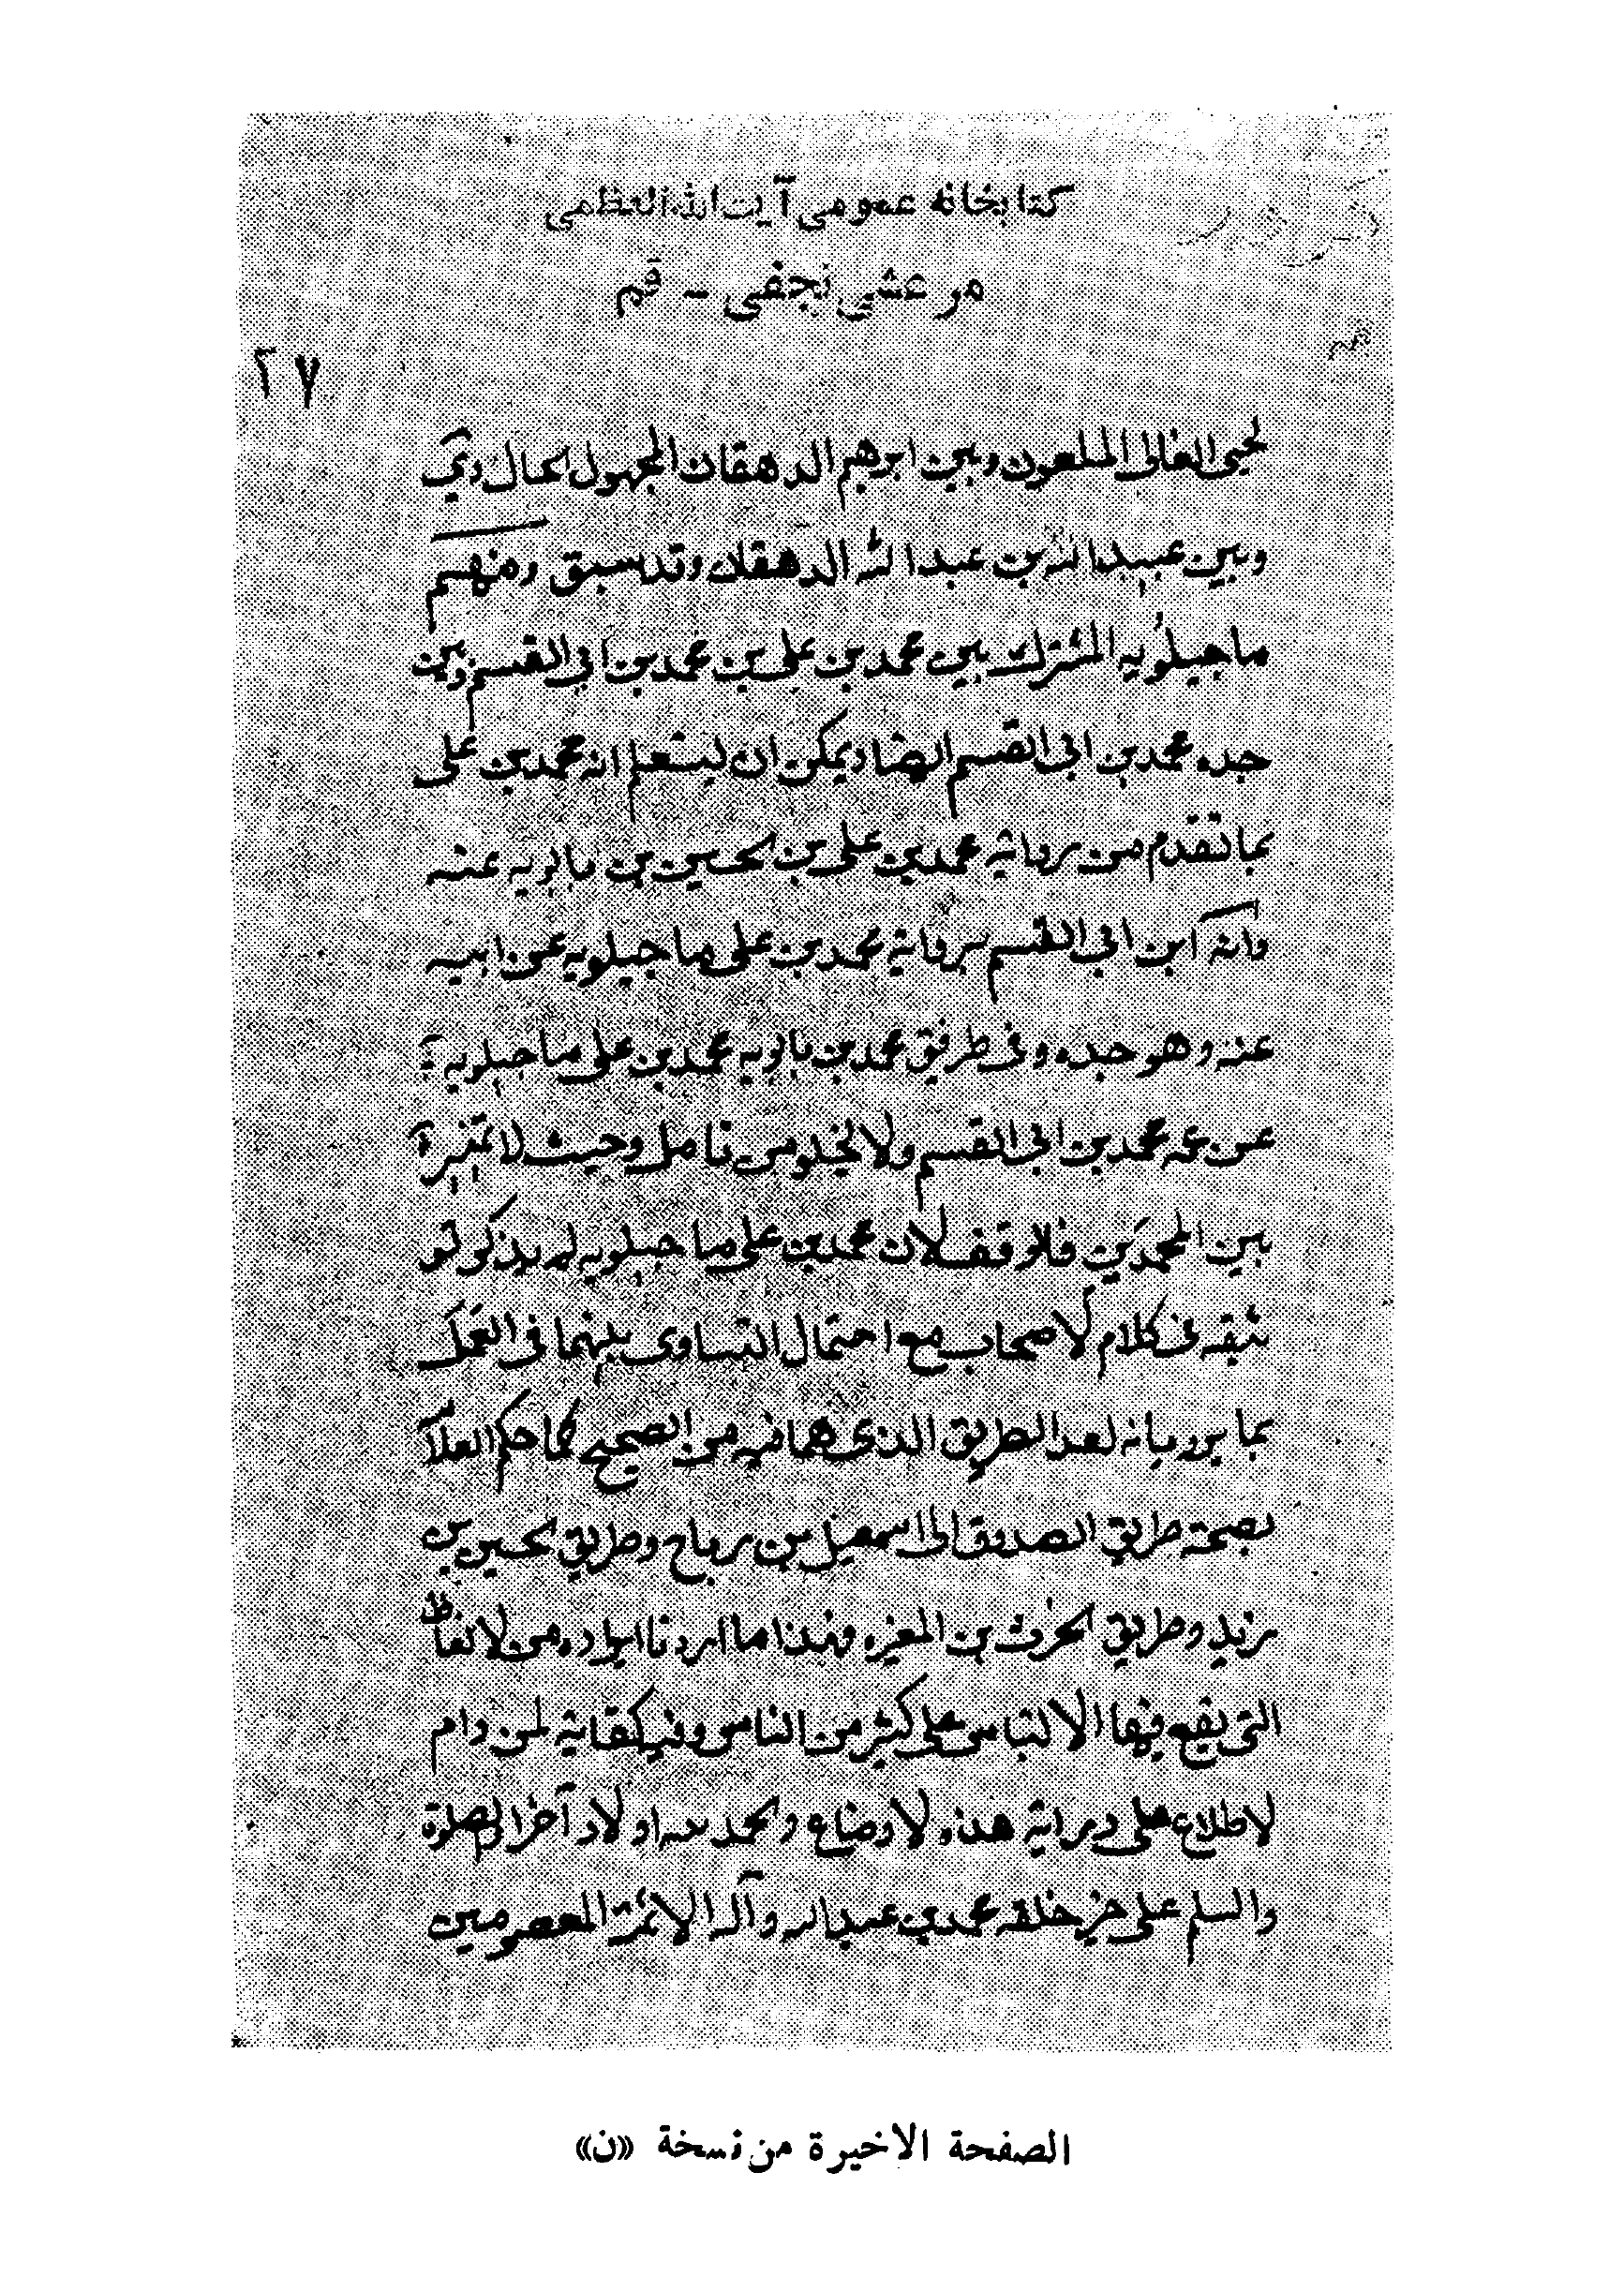 كتابخانه عمومی آیت الله العظمی
مرعشی نجفی - قم
٢٧
يحيى الغالى الملعون وبين ابرهيم الدهقان المجهول الحال
وبين عبيدالله بن عبدالله الدهقان وقد سبق ومنهم
ماجيلويه المشترك بين محمد بن على بن محمد بن ابى القسم وبين
جده محمد بن ابى القسم ايضا ويمكن ان يستعلم انه محمد بن على
بما تقدم من رواية محمد بن على بن الحسين بن بابويه عنه
وانه ابن ابى القسم برواية محمد بن على ماجيلويه عن ابيه
عنه وهو جده وفى طريق محمد بن بابويه محمد بن على ماجيلويه
عن عمه محمد بن ابى القسم ولا يخلو من تامل وحيث لا تميز
بين المحمدين فلا وقف لان محمد بن على ماجيلويه لم يذكر تو
ثيقه فى كلام الاصحاب مع احتمال التساوى بينهما فى الحكم
بما يرويانه لعد الطريق الذى هما فيه من الصحيح كما حكم العلا
بصحة طريق الصدوق الى اسمعيل بن رباح وطريق الحسين بن
زيد وطريق الحرث بن المغيره فهذا ما اردنا ايراده من الالفاظ
التى يقع فيها الالتباس على كثير من الناس وفيه كفاية لمن رام
الاطلاع على دراية هذه الاوضاع والحمد لله اولا وآخرا والصلوة
والسلم على خير خلقه محمد بن عبدالله وآله الائمة المعصومين
الصفحة الاخيرة من نسخة «ن»